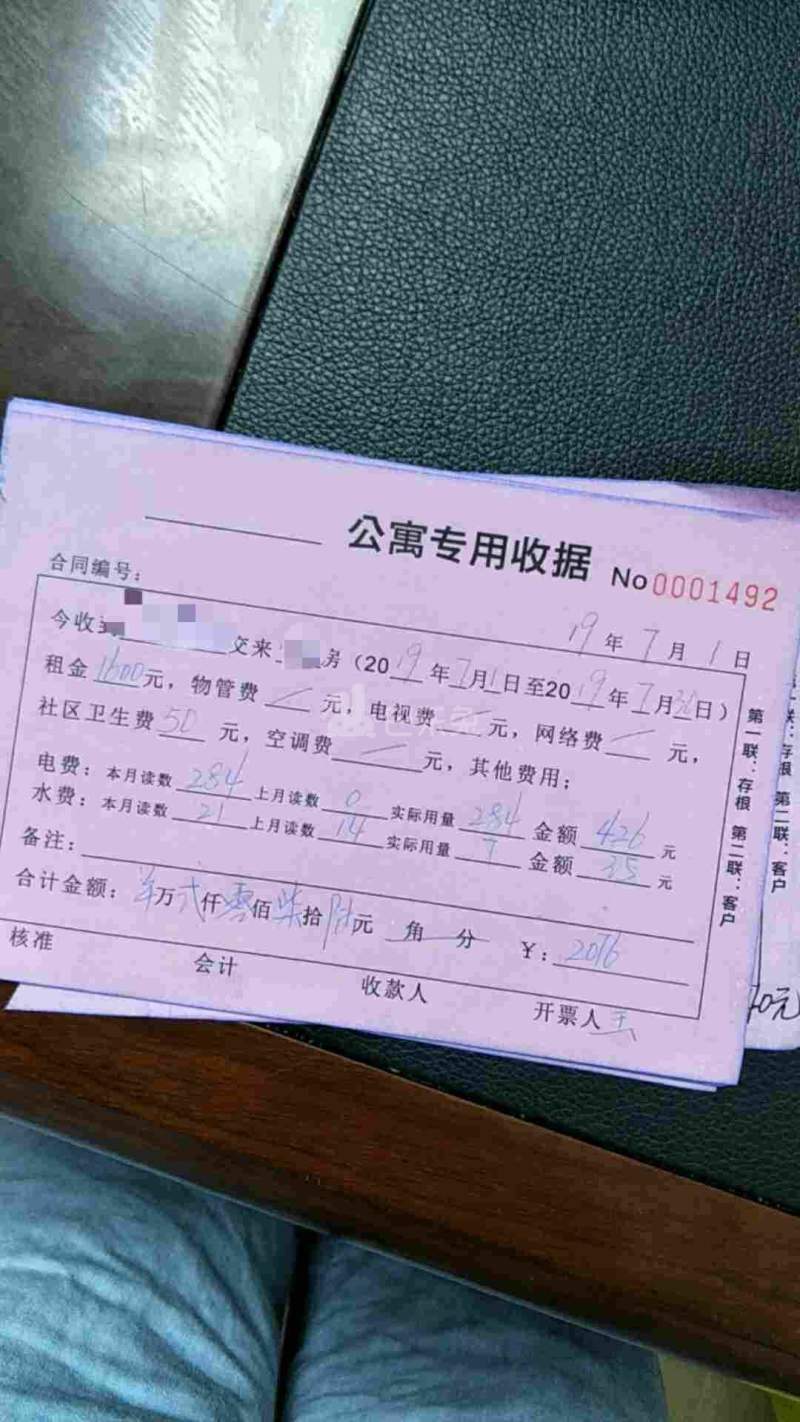 公寓专用收据 No 0001492
合同编号：
19年7月1日
今收到 交来 房（2019年7月1日至2019年7月30日）
租金1600元，物管费 元，电视费 元，网络费 元，
社区卫生费50元，空调费 元，其他费用；
电费：本月读数284上月读数0实际用量284金额426元
水费：本月读数21上月读数14实际用量7金额35元
备注：
合计金额： 万弍仟零佰柒拾陆元 角 分 ￥：2076
核准 会计 收款人 开票人王
第一联：存根 第二联：客户
第一联：存根 第二联：客户
0元